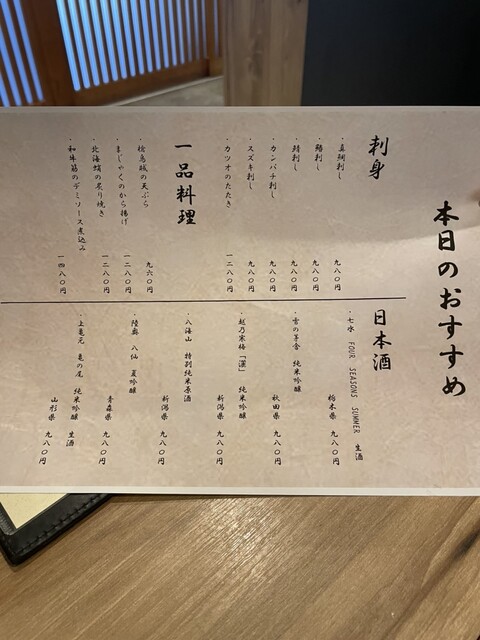 本日のおすすめ
刺身
・真鯛刺し 九八〇円
・鯵刺し 九八〇円
・鯖刺し 九八〇円
・カンパチ刺し 九八〇円
・スズキ刺し 九八〇円
・カツオのたたき 一二八〇円
一品料理
・桧鳥賊の天ぷら 九六〇円
・まじゃくのから揚げ 一二八〇円
・北海蛸の炙り焼き 一二八〇円
・和牛筋のデミソース煮込み 一四八〇円
日本酒
・七水 FOUR SEASONS SUMMER 生酒
栃木県 九八〇円
・雪の茅舎 純米吟醸
秋田県 九八〇円
・越乃寒梅「灑」 純米吟醸
新潟県 九八〇円
・八海山 特別純米原酒
新潟県 九八〇円
・陸奥 八仙 夏吟醸
青森県 九八〇円
・上亀元 亀の尾 純米吟醸 生酒
山形県 九八〇円